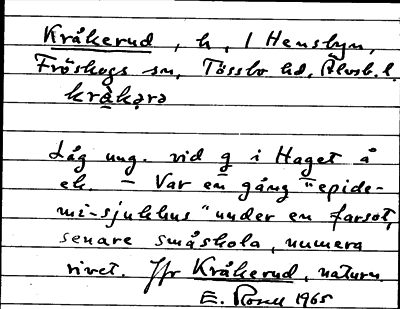 Kråkerud, h, / Hensbyn,
Fröskogs sn, Tössbo hd, Älvsb. l.
kràkạrə
Låg ung. vid g i Haget å
ek. – Var en gång "epide-
mi-sjukhus" under en farsot,
senare småskola, numera
rivet. Jfr Kråkerud, naturn.
E. Rosell 1965